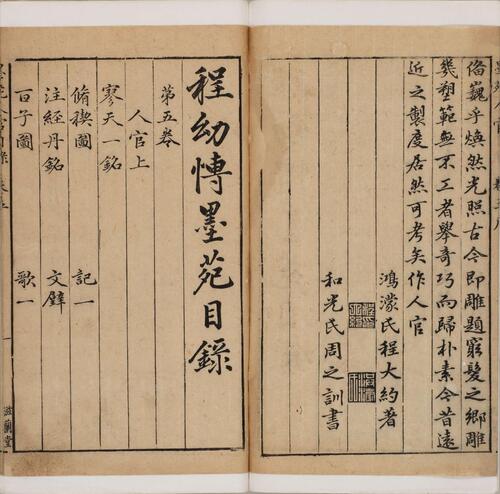 脩巍乎煥然光照古今即雕題窮髮之鄉雕
幾塑範無不工者舉奇巧而歸朴素今昔遠
近之製度居然可考矣作人官
鴻濛氏程大約著
和光氏周之訓書
程幼博墨苑目錄
第五卷
人官上
寥天一銘
脩禊圖 記一
注經丹銘 文璧
百子圖 歌一
一
滋蘭堂